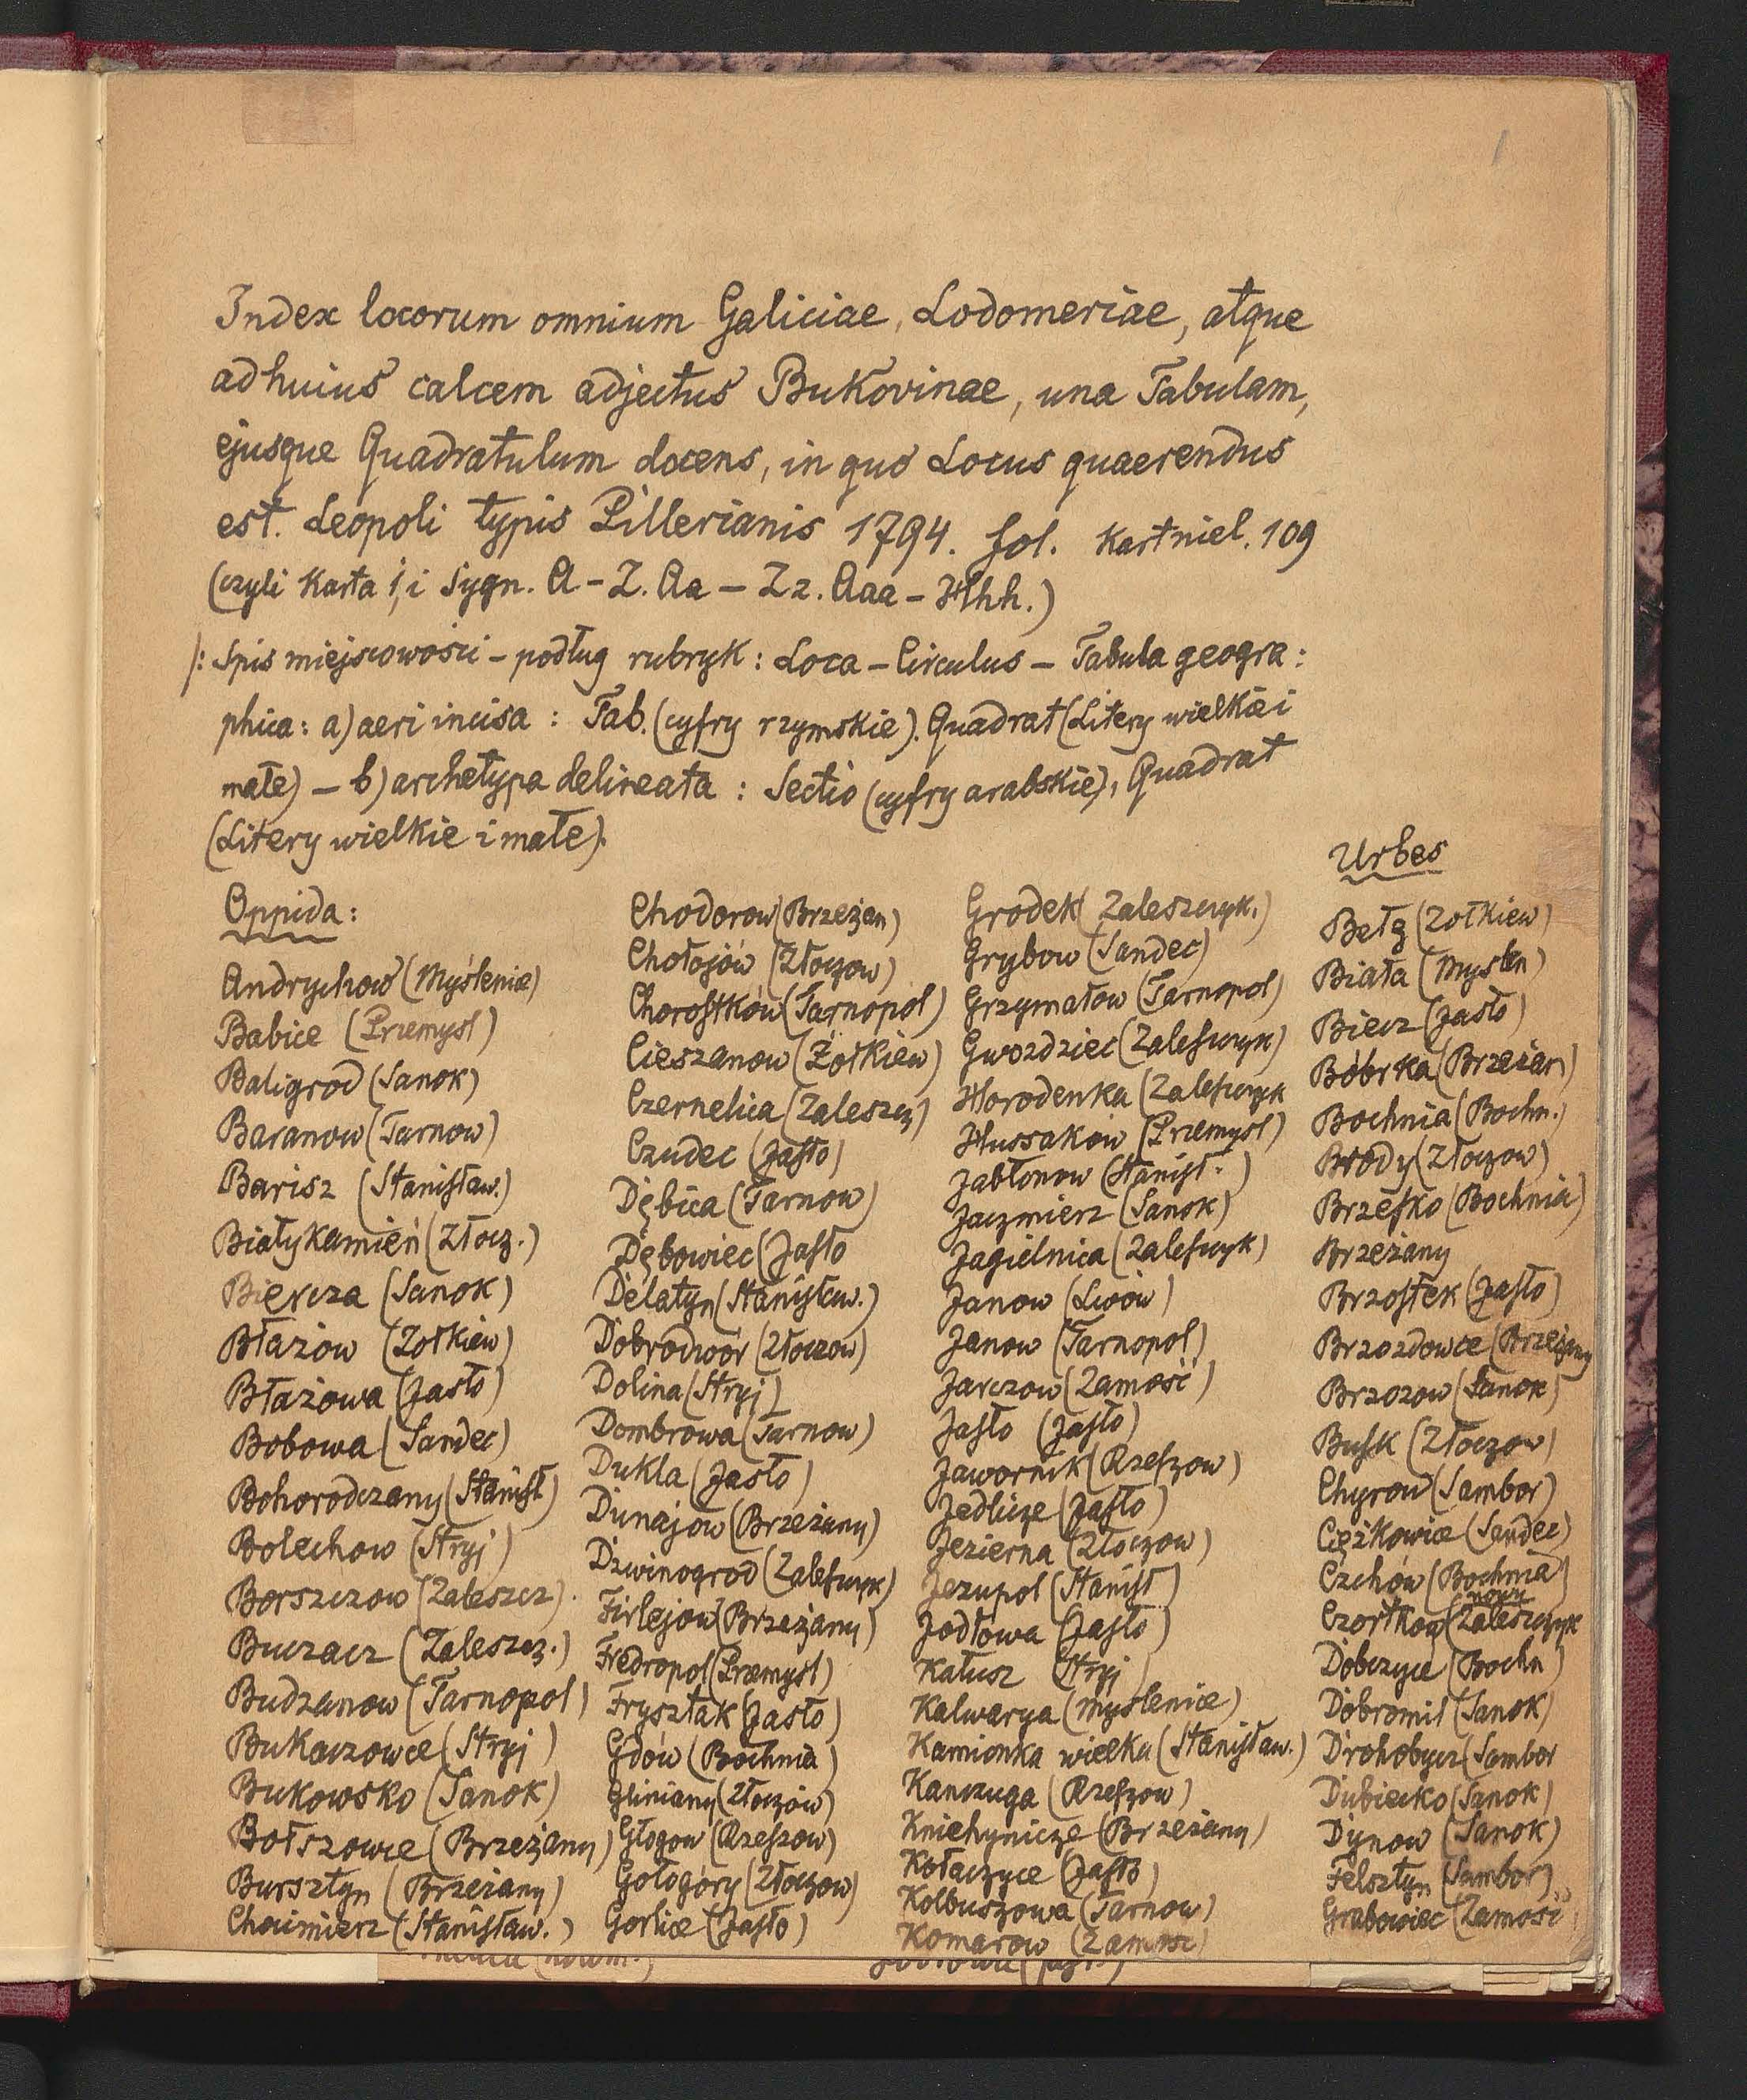 1
Index locorum omnium Galiciae, Lodomeriae, atque
ad huius calcem adjectus Bukovinae, una Tabulam,
ejusque Quadratulum docens, in quo Locus quaerendus
est. Leopoli typis Pillerianis 1794. fol. kart niel. 109
(czyli karta 1, i sygn. A – Z. Aa – Zz. Aaa – Hhh.)
/: Spis miejscowości – podług rubryk : Loca – Circulus – Tabula geogra:
phica: a) aeri incisa : Tab. (cyfry rzymskie). Quadrat (Litery wielkie i
małe) – b) archetypa delineata : Sectio (cyfry arabskie), Quadrat
(Litery wielkie i małe).
Oppida:
Andrychow (Myślenice)
Babice (Przemysl)
Baligrod (Sanok)
Baranow (Tarnow)
Barisz (Stanisław.)
Białykamień (Złocz.)
Biercza (Sanok)
Błazow (Zołkiew)
Błażowa (Jasło)
Bobowa (Sandec)
Bohorodczany (Stanisł)
Bolechow (Stryj)
Borszczow (Zaleszcz)
Buczacz (Zaleszcz.)
Budzanow (Tarnopol)
Bukaczowce (Stryj)
Bukowsko (Sanok)
Bołszowce (Brzeżany)
Bursztyn (Brzeżany)
Chocimierz (Stanisław.)
Chodorow (Brzeżan)
Chołojów (Złoczow)
Chorostków (Tarnopol)
Cieszanow (Żołkiew)
Czernelica (Zaleszcz)
Czudec (Jasło)
Dębica (Tarnow)
Dębowiec (Jasło
Delatyn (Stanisław.)
Dobrodwór (Złoczow)
Dolina (Stryj)
Dombrowa (Tarnow)
Dukla (Jasło)
Dunajow (Brzeżany)
Dzwinogrod (Zaleszczyk)
Firlejow (Brzeżany)
Fredropol (Przemysl)
Frysztak (Jasło)
Gdów (Bochnia)
Gliniany (Złoczów)
Głogow (Rzeszow)
Gołogóry (Złoczow)
Gorlice (Jasło)
Grodek (Zaleszczyk.)
Grybow (Sandec)
Grzymałow (Tarnopol)
Gwozdziec (Zaleszczyk)
Horodenka (Zaleszczyk
Hussakow (Przemysl)
Jabłonow (Stanisł.)
Jaczmierz (Sanok)
Jagielnica (Zaleszczyk)
Janow (Lwów)
Janow (Tarnopol)
Jarczow (Zamość)
Jasło (Jasło)
Jawornik (Rzeszow)
Jedlicze (Jasło)
Jezierna (Złoczow)
Jezupol (Stanisł)
Jodłowa (Jasło)
Kałusz (Stryj)
Kalwarya (Myslenice)
Kamionka wielka (Stanisław.)
Kanczuga (Rzeszow)
Kniehynicze (Brzeżany)
Kołaczyce (Jasło)
Kolbuszowa (Tarnow)
Komarow (Zamosc)
Urbes
Bełz (Zołkiew)
Biała (Myslen)
Biecz (Jasło)
Bóbrka (Brzeżan)
Bochnia (Bochn.)
Brody (Złoczow)
Brzesko (Bochnia)
Brzeżany
Brzostek (Jasło)
Brzozdowce (Brzeżany
Brzozow (Sanok)
Busk (Złoczow)
Chyrow (Sambor)
Ciężkowice (Sandec)
Czchów (Bochnia)
Czortkow (Zaleszczyk
Dobczyce (Bochn)
Dobromil (Sanok)
Drohobycz (Sambor
Dubiecko (Sanok)
Dynow (Sanok)
Felsztyn (Sambor)
Grabowiec (Zamość)